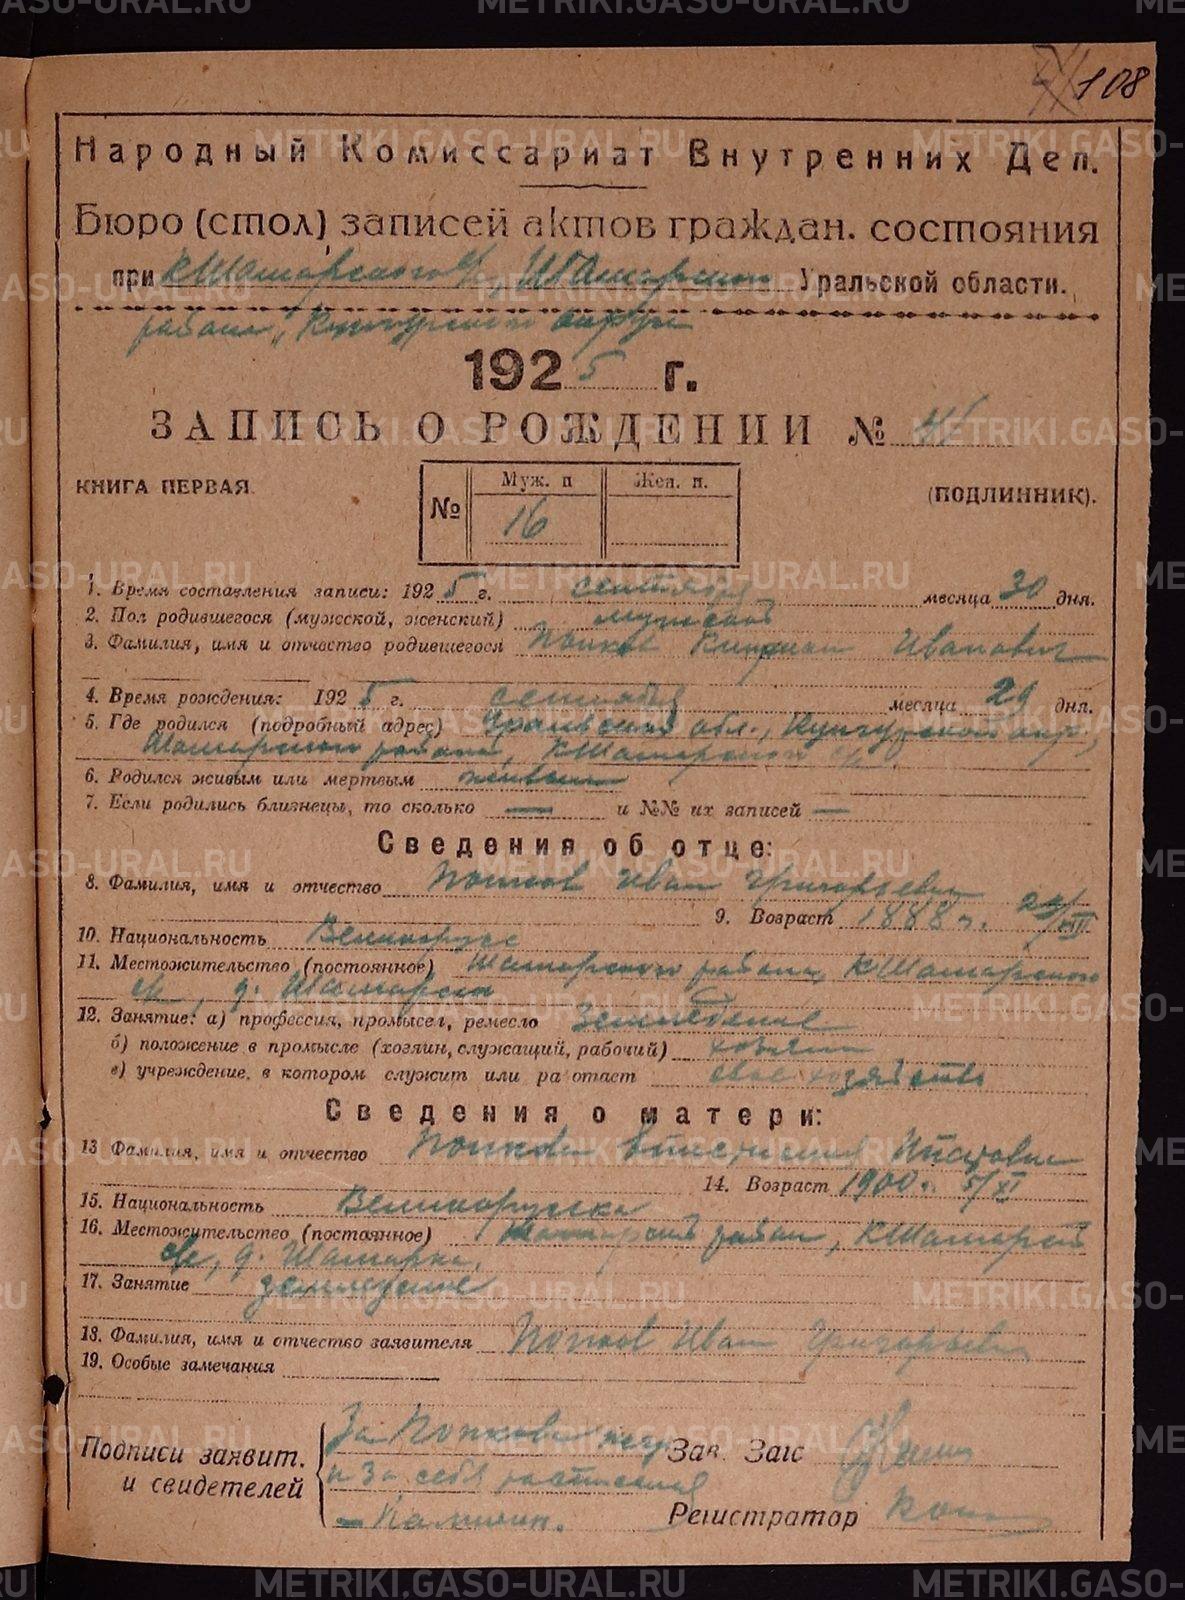 108
Народный Комиссариат Внутренних Дел.
Бюро (стол) записей актов граждан. состояния
при КШамарского с/с, Шамарского Уральской области.
района, Кунгурского округа
1925 г.
ЗАПИСЬ О РОЖДЕНИИ № 41
КНИГА ПЕРВАЯ. № Муж. п 16 Жен. п. (ПОДЛИННИК).
1. Время составления записи: 1925 г. сентября месяца 30 дня.
2. Пол родившегося (мужской, женский) мужской
3. Фамилия, имя и отчество родившегося Попков Киприан Иванович
4. Время рождения: 1925 г. сентября месяца 29 дня.
5. Где родился (подробный адрес) Уральской обл., Кунгурского окр.,
Шамарского района, КШамарского с/с.
6. Родился живым или мертвым живым
7. Если родились близнецы, то сколько — и №№ их записей —
Сведения об отце:
8. Фамилия, имя и отчество Попков Иван Григорьевич
9. Возраст 1888 г.
10. Национальность Великорусс
11. Местожительство (постоянное) Шамарского района, КШамарского
с/с, д. Шамарка
12. Занятие: а) профессия, промысел, ремесло Земледелие
б) положение в промысле (хозяин, служащий, рабочий) хозяин
в) учреждение, в котором служит или работает свое хозяйство
Сведения о матери:
13 Фамилия, имя и отчество Попкова
14. Возраст 1900 г. 5/XI
15. Национальность Великорусска
16. Местожительство (постоянное) Шамарский район, КШамарский
с/с, д. Шамарка.
17. Занятие земледелие
18. Фамилия, имя и отчество заявителя Попков Иван Григорьевич
19. Особые замечания
Подписи заявит. и свидетелей
За Попкова негр.
и за себя расписался
Зав. Загс
Регистратор
METRIKI.GASO-URAL.RU